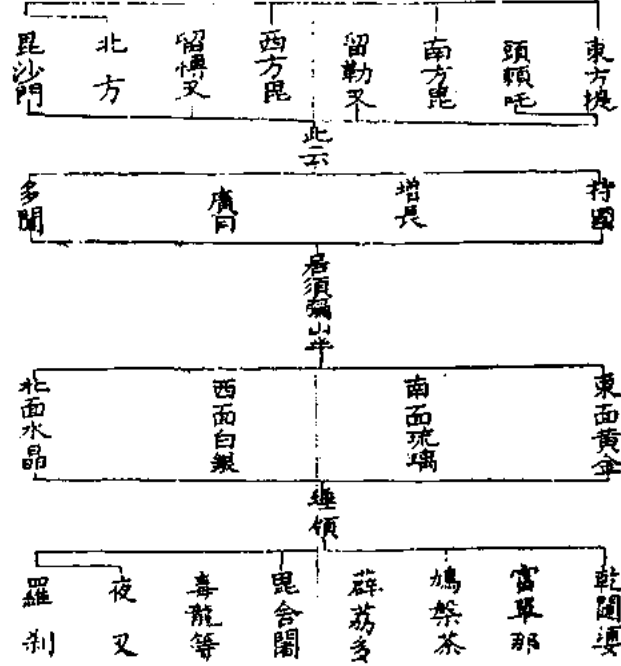 東方提
頭頼吒
南方毘
留勒叉
西方毘
留愽叉
北方
毘沙門
此云
持國
增長
廣目
多聞
居須彌山半
東面黄金
南面琉璃
西面白銀
北面水晶
捶領
乾闥婆
富單那
鳩槃茶
薜荔多
毘舍闍
毒龍等
夜叉
羅剎